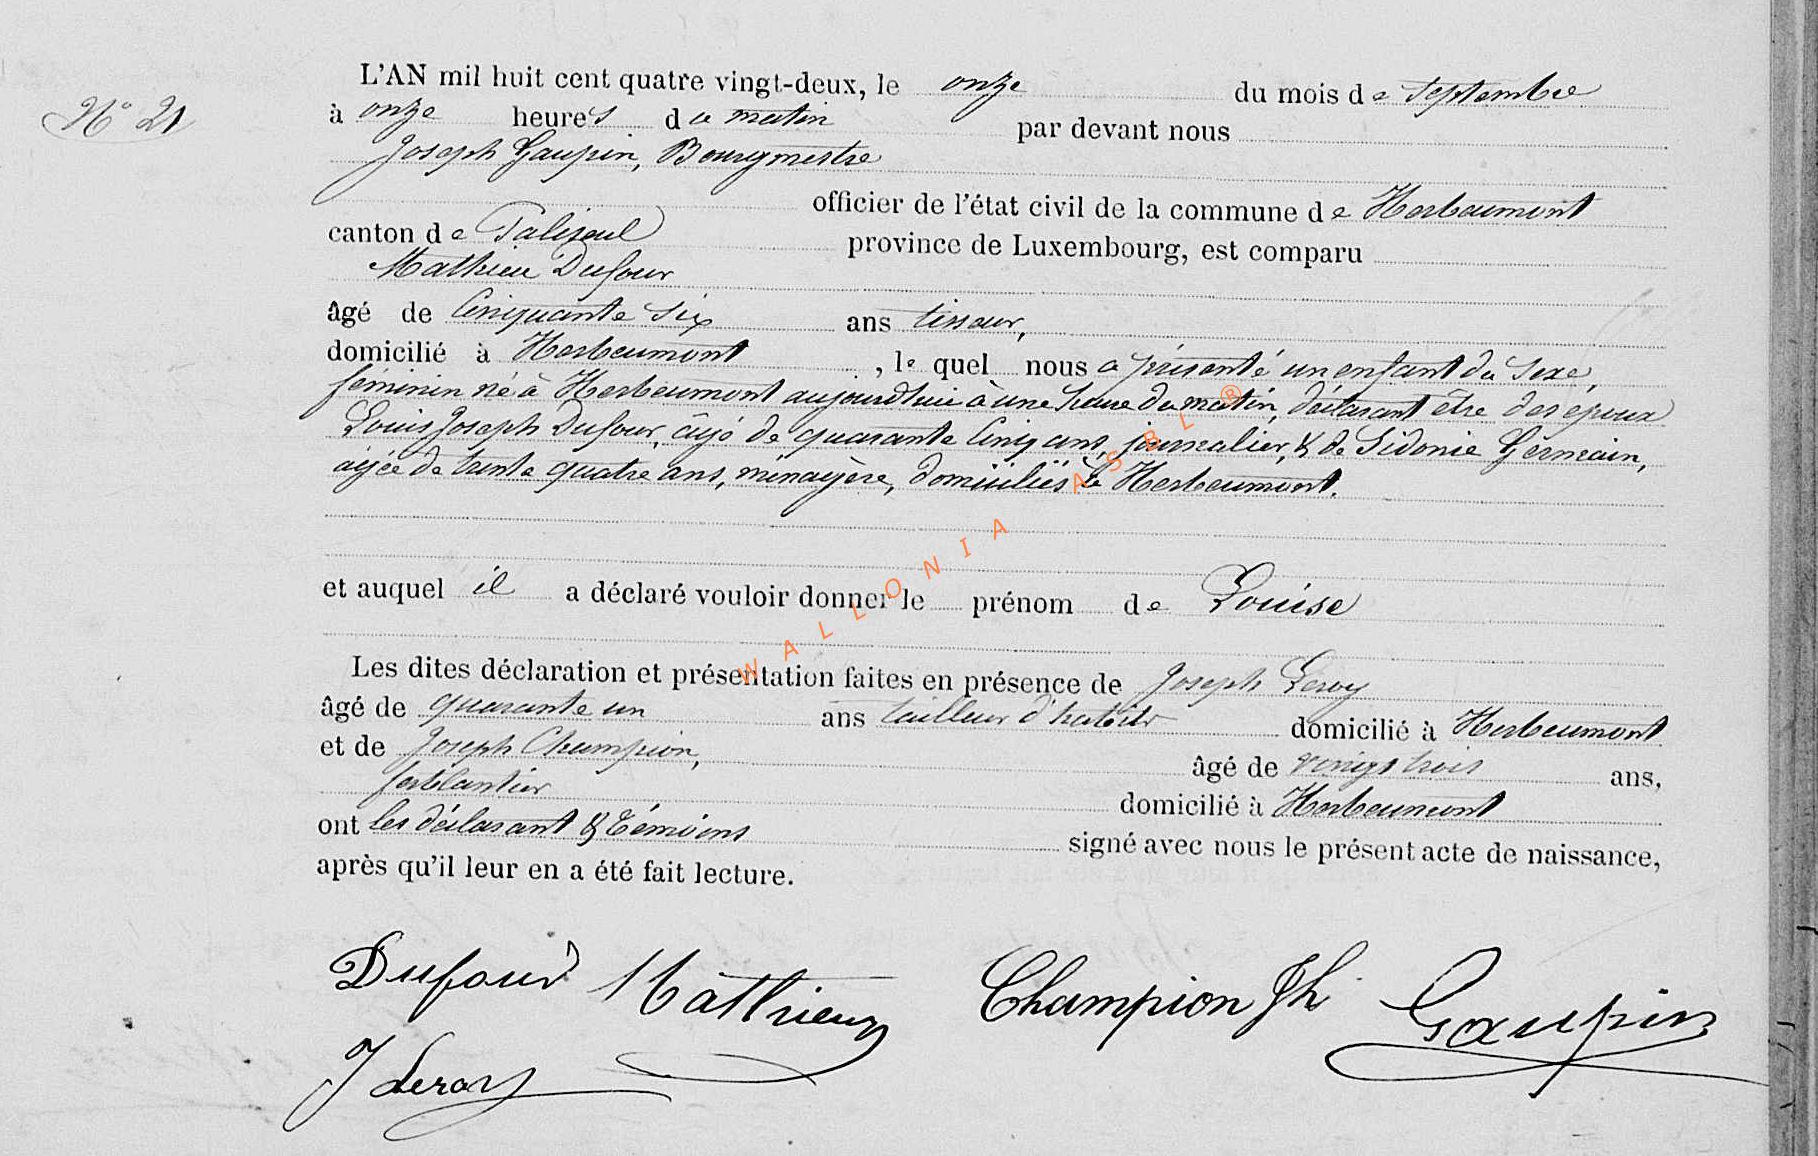 N° 21
L'AN mil huit cent quatre vingt-deux, le onze du mois de Septembre
à onze heures du matin par devant nous
Joseph Gaupin, Bourgmestre
officier de l'état civil de la commune de Herbeumont
canton de Paliseul province de Luxembourg, est comparu
Mathieu Dufour
âgé de Cinquante six ans tisseur,
domicilié à Herbeumont, le quel nous a présenté un enfant du sexe,
féminin né à Herbeumont aujourd'hui à une heure du matin, déclarant être des époux
Louis Joseph Dufour, âgé de quarante Cinq ans, journalier, & de Sidonie Germain,
âgée de trente quatre ans, ménagère, domiciliés à Herbeumont.
et auquel il a déclaré vouloir donner le prénom de Louise
Les dites déclaration et présentation faites en présence de Joseph Leroy
âgé de quarante un ans tailleur d'habits domicilié à Herbeumont
et de Joseph Champion, âgé de vingt trois ans,
ferblantier domicilié à Herbeumont
ont les déclarant & témoins signé avec nous le présent acte de naissance,
après qu'il leur en a été fait lecture.
Dufour Mathieu Champion Jh Gaupin
J Leroy
WALLONIA ASBL ®